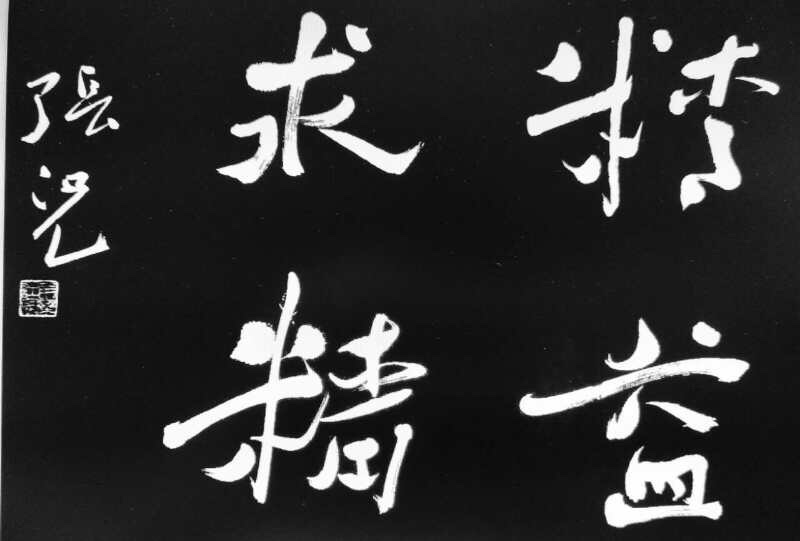 精益
求精
張況